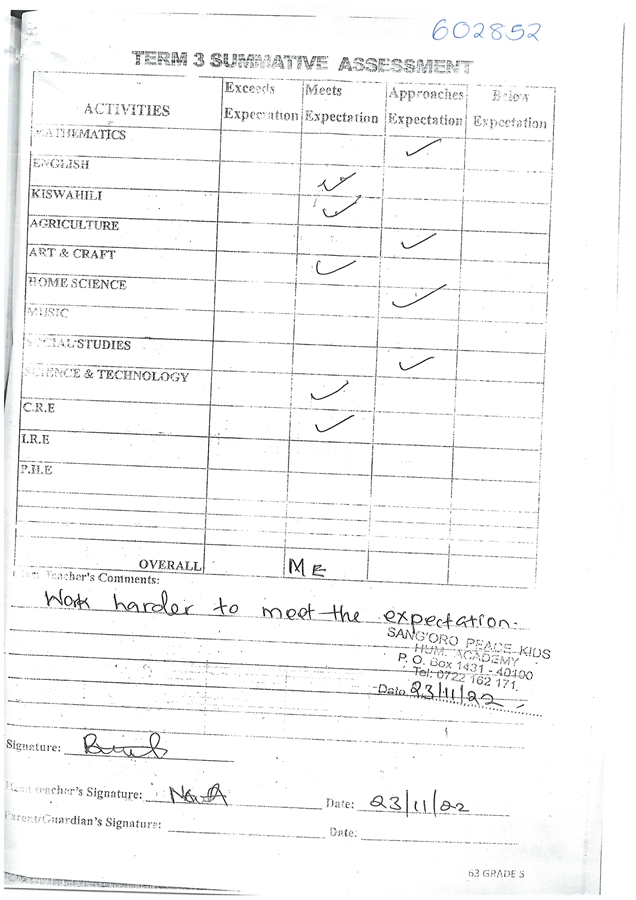 602852
TERM 3 SUMMATIVE ASSESSMENT
ACTIVITIES
Exceeds Expectation
Meets Expectation
Approaches Expectation
Below Expectation
MATHEMATICS ✓
ENGLISH ✓
KISWAHILI ✓
AGRICULTURE ✓
ART & CRAFT ✓
HOME SCIENCE ✓
MUSIC
SOCIAL STUDIES ✓
SCIENCE & TECHNOLOGY ✓
C.R.E ✓
I.R.E
P.H.E
OVERALL ME
Teacher's Comments:
Work harder to meet the expectation.
SANG'ORO PEACE KIDS
HUM. ACADEMY
P. O. Box 1431 - 40100
Tel: 0722 162 171
Date 23/11/22
Signature:
Head teacher's Signature: Date: 23/11/22
Parent/Guardian's Signature: Date:
63 GRADE 5